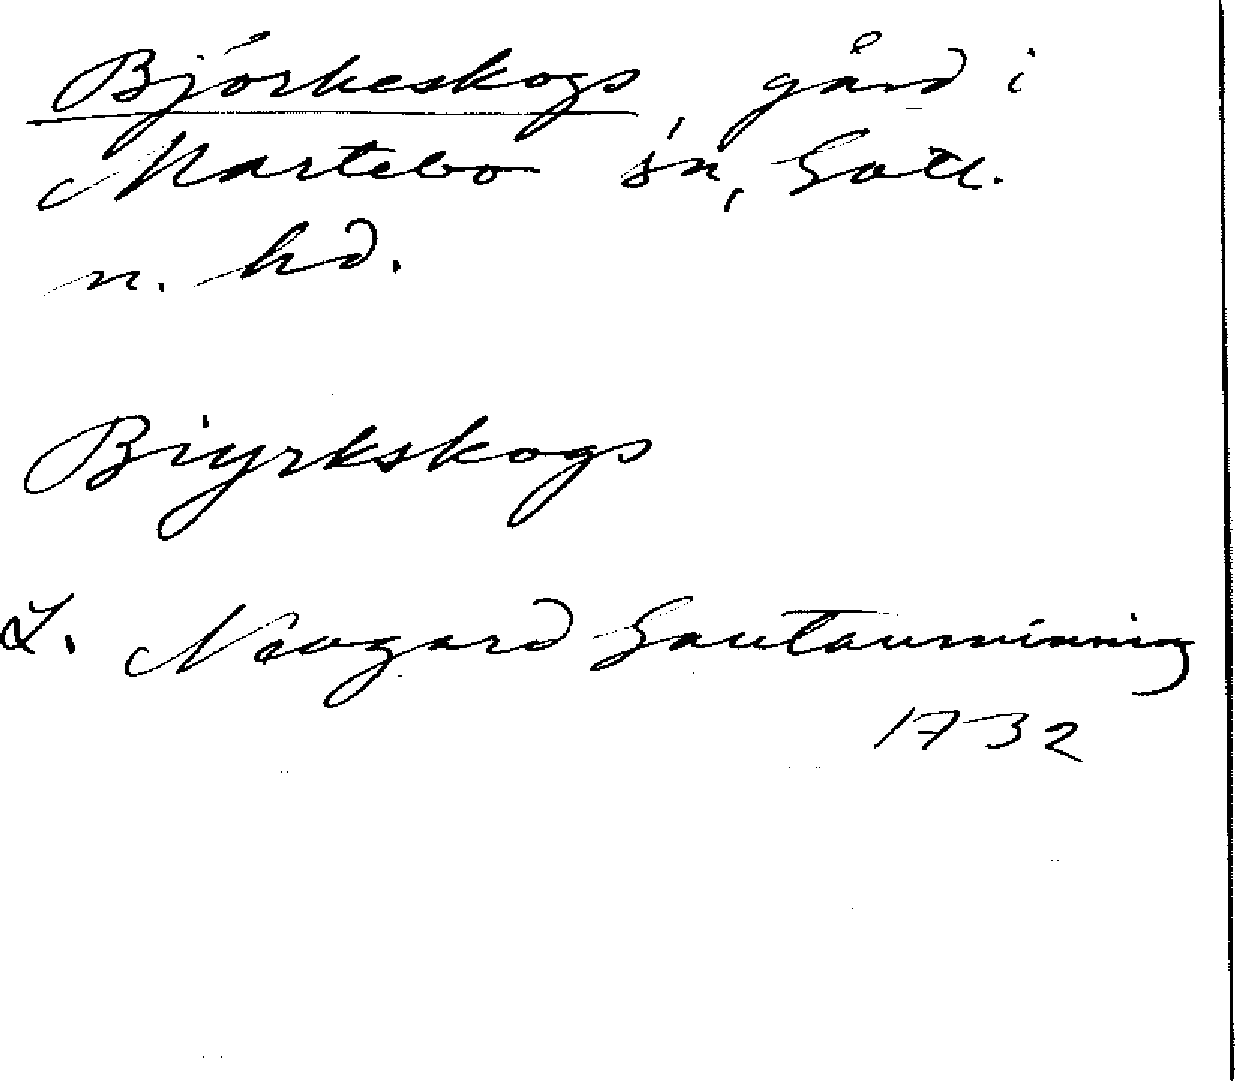 Björkeskogs gård i
Martebo sn, Gotl.
n. hd.
Biyrkskogs
L. Neogard Gautauminning
1732